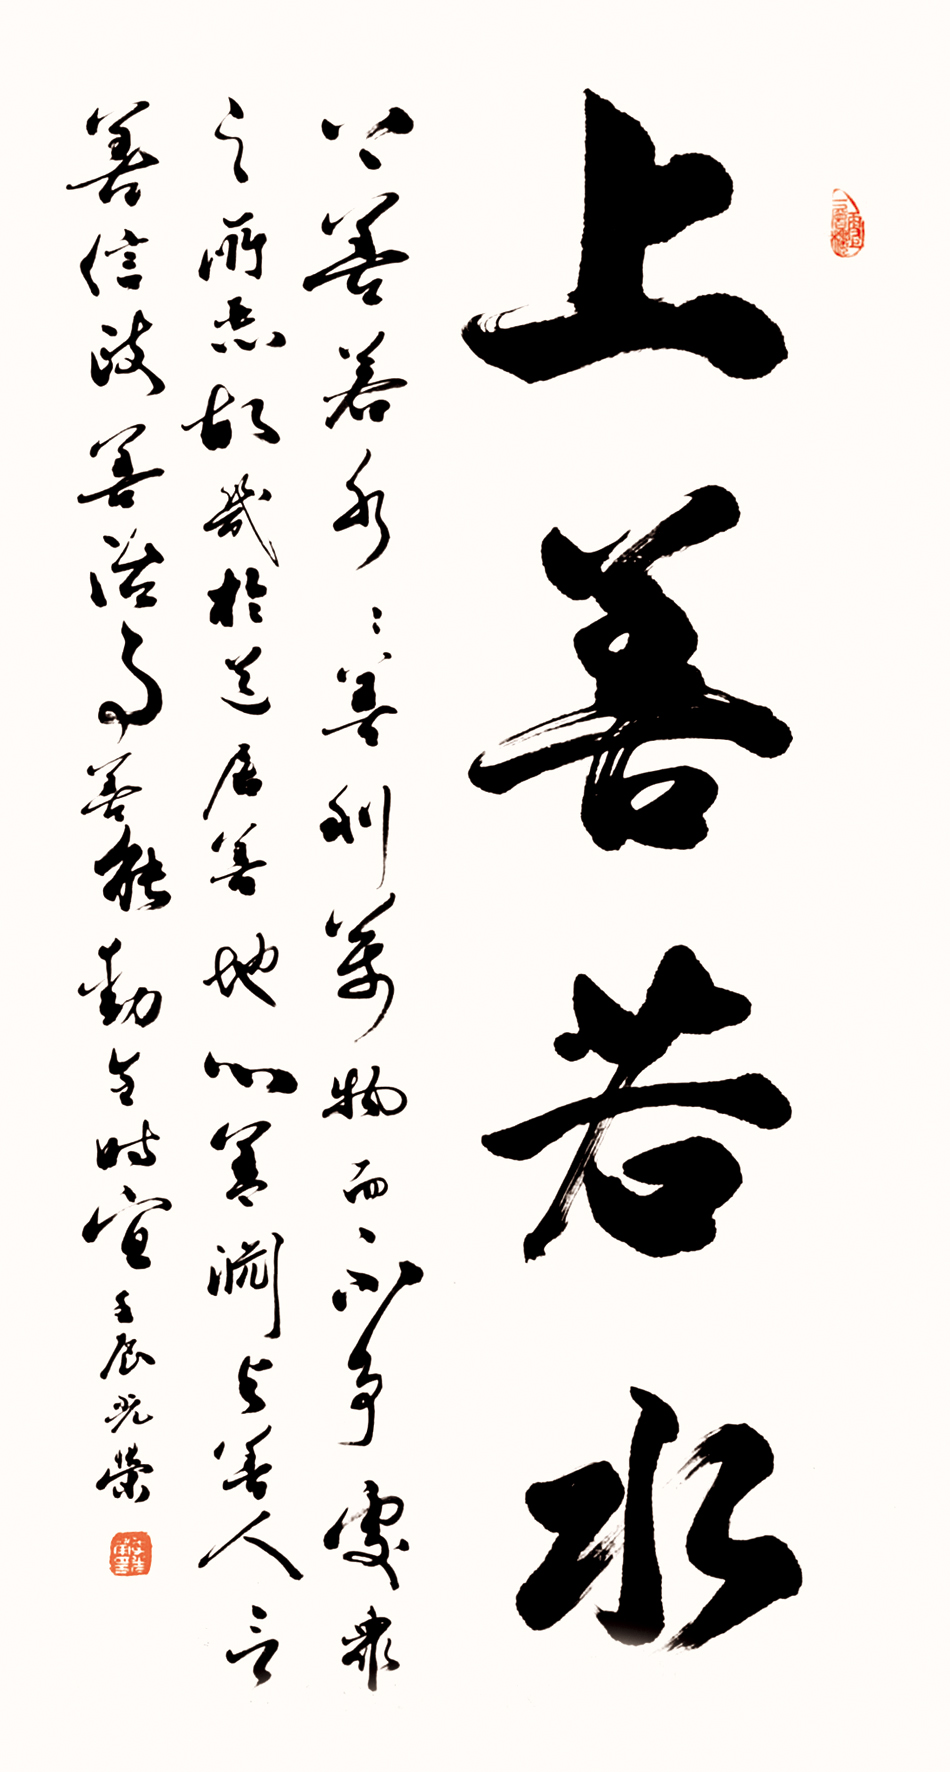 上善若水
上善若水〻善利萬物而不争處衆
之所惡故幾於道居善地心善淵与善人言
善信政善治事善能動合時宜 壬辰 榮